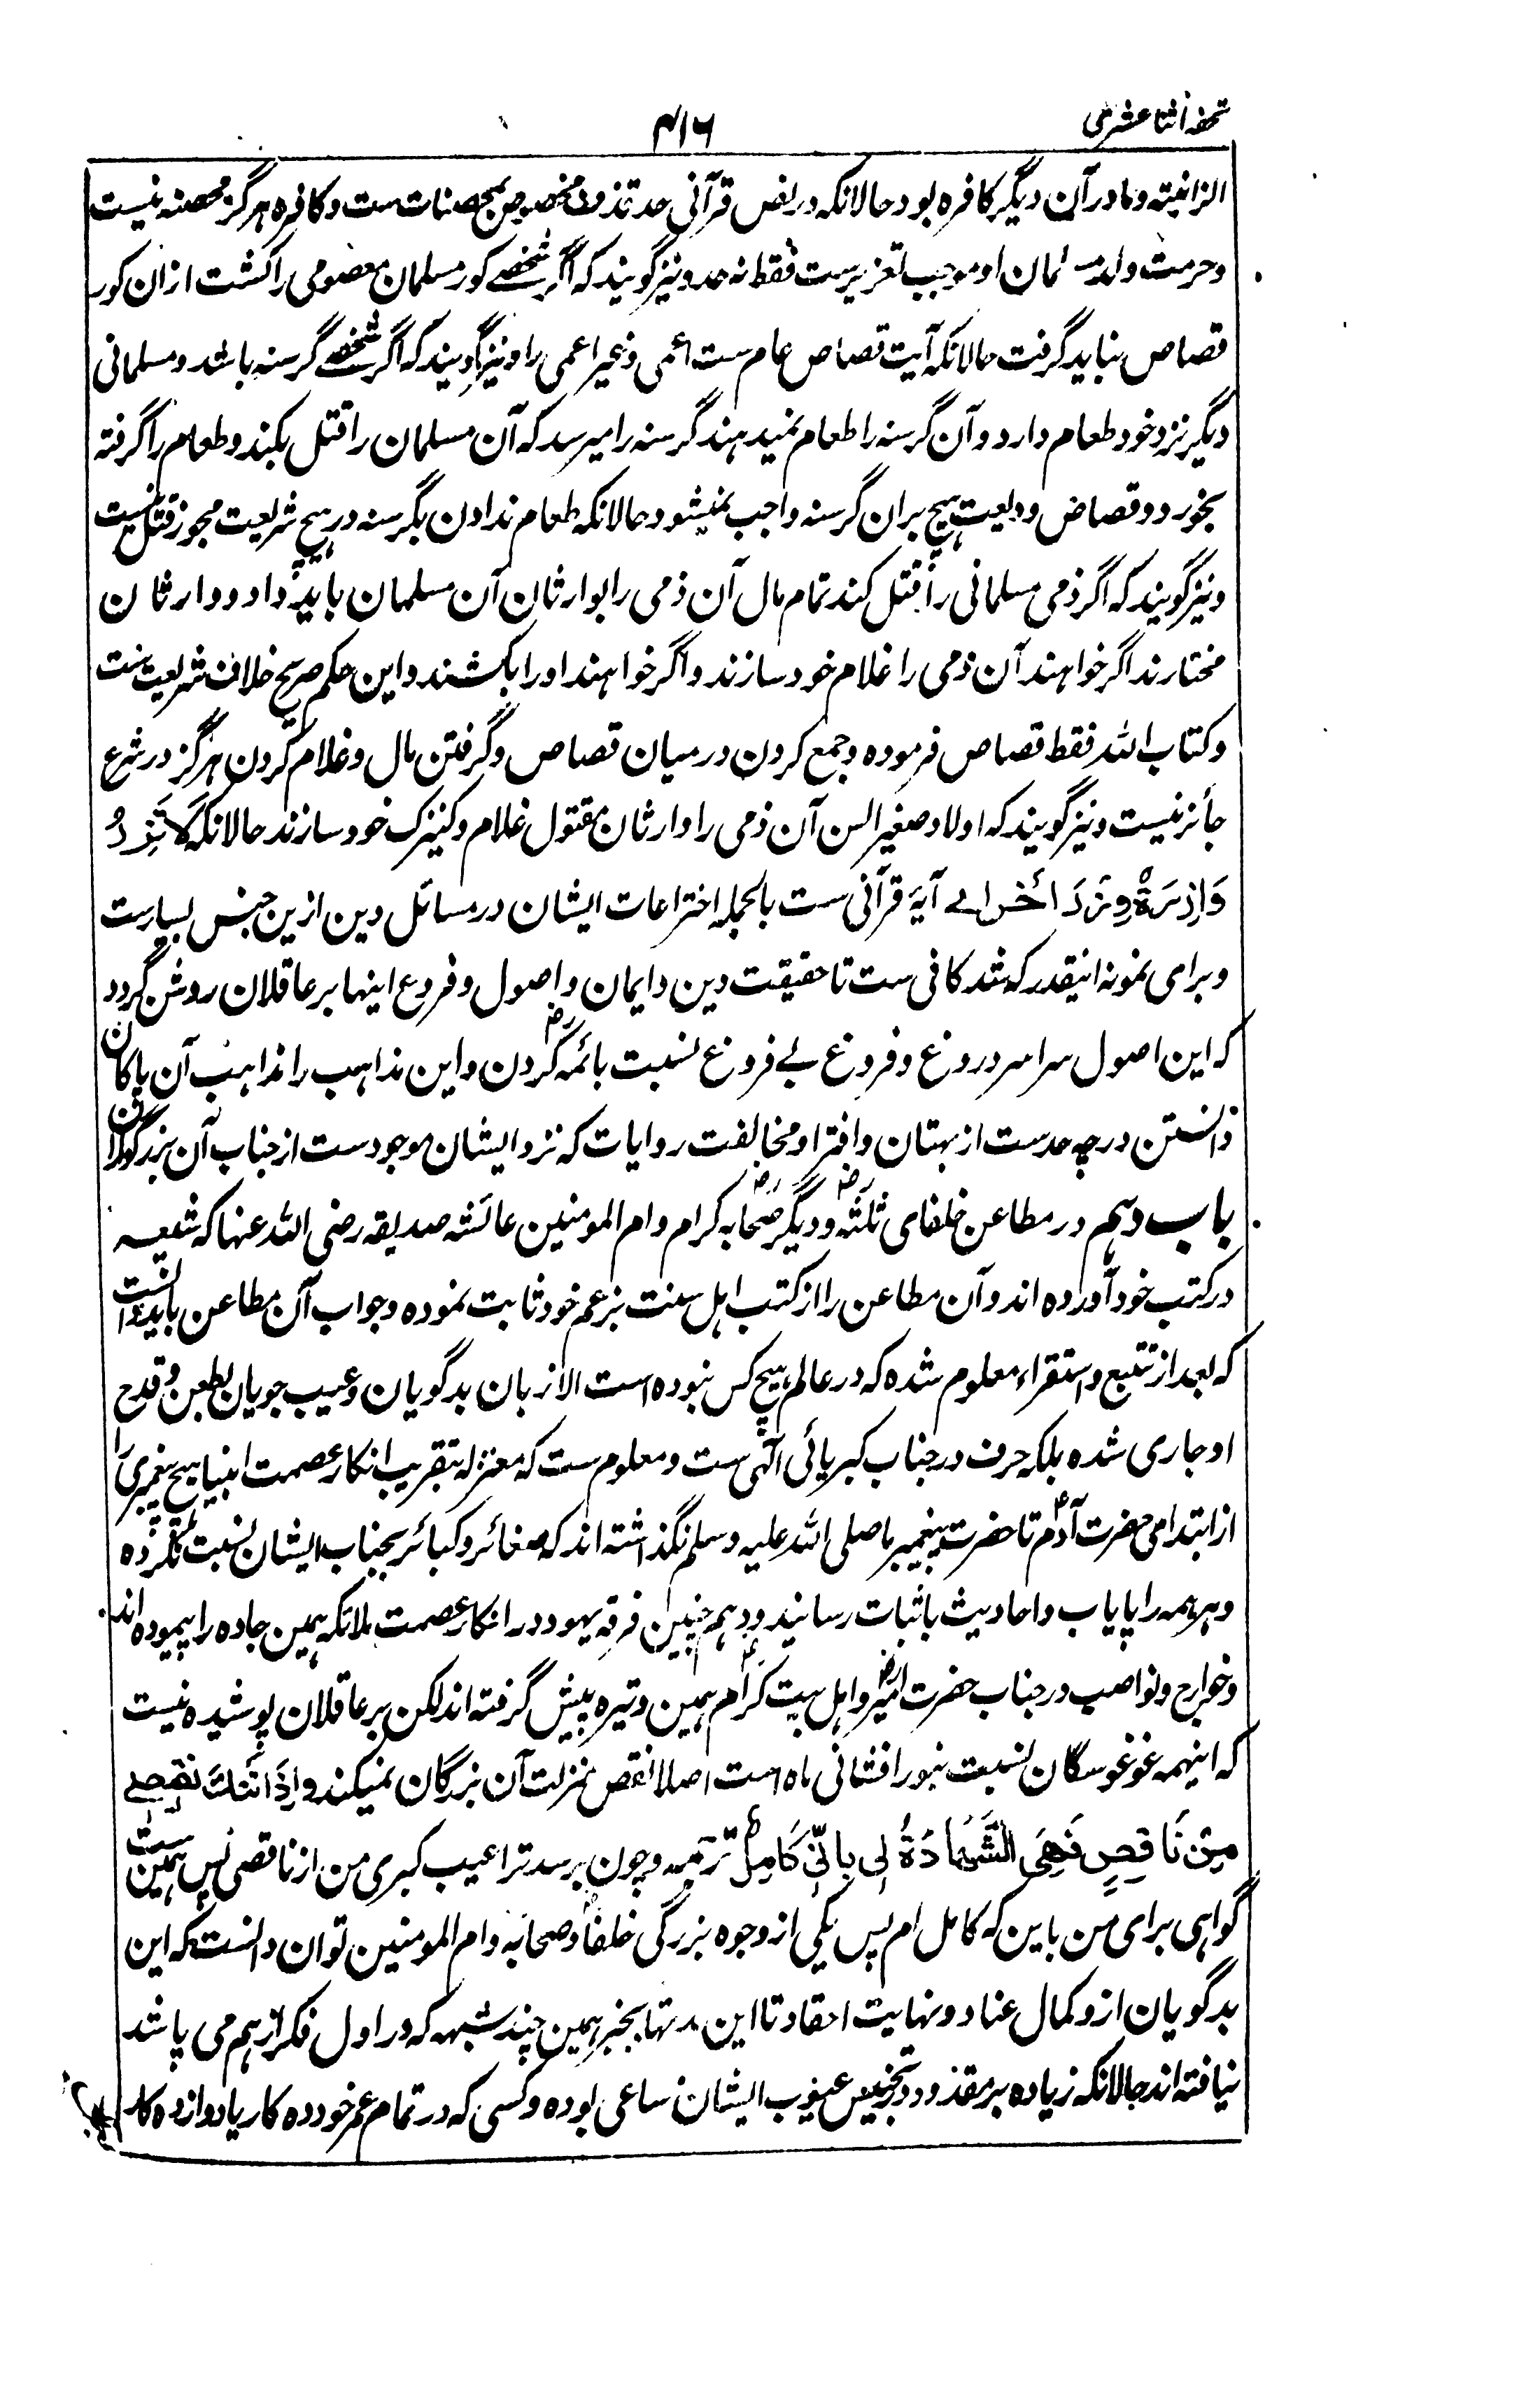 تحفهٔ اثنا عشریه
۴۱۶
الزانیته و مادر آن دیگر کافره بود حالانکه در نص قرآنی حد قذف مخصوص بمحصنات ست و کافره هرگز محصنه نیست
و حرمت ولد مسلمان او موجب تعزیرست فقط نه حد و نیز گویند که اگر شخصے کور مسلمان معصومی را کشت ازان کور
قصاص نباید گرفت حالانکه آیت قصاص عام ست اعمی و غیر اعمی را و نیز گویند که اگر شخصے گرسنه باشد و مسلمانی
دیگر نزد خود طعام دارد و آن گرسنه را طعام نمیدهند گرسنه را میرسد که آن مسلمان را قتل بکند و طعام را گرفته
بخورد و قصاص و دیعت هیچ بران گرسنه واجب نمیشود حالانکه طعام ندادن بگرسنه در هیچ شریعت مجوز قتل نیست
و نیز گویند که اگر ذمی مسلمانی را قتل کند تمام مال آن ذمی را بوارثان آن مسلمان باید داد و وارثان
مختارند اگر خواهند آن ذمی را غلام خود سازند و اگر خواهند او را بکشند و این حکم صریح خلاف شریعت ست
و کتاب الله فقط قصاص فرموده و جمع کردن در میان قصاص و گرفتن مال و غلام کردن هرگز در شرع
جائز نیست و نیز گویند که اولاد صغیر السن آن ذمی را وارثان مقتول غلام و کنیزک خود سازند حالانکه لَا تَزِرُ
وَازِرَةٌ وِّزْرَ اُخْرٰے آیهٔ قرآنی ست بالجمله اختراعات ایشان در مسائل دین ازین جنس بسیارست
و برای نمونه اینقدر که شد کافی ست تا حقیقت دین و ایمان و اصول و فروع اینها بر عاقلان روشن گردد
که این اصول سراسر دروغ و فروع بے فروغ نسبت بائمه رض کردن و این مذاهب را مذاهب آن پاکان
دانستن در چه حدست از بهتان و افترا و مخالفت روایات که نزد ایشان موجودست از جناب آن بزرگواران
باب دهم در مطاعن خلفای ثلثه رض و دیگر صحابه رض کرام و ام المومنین عائشه صدیقه رضی الله عنها که شیعه
در کتب خود آورده اند و آن مطاعن را از کتب اهل سنت بزعم خود ثابت نموده و جواب آن مطاعن باید دانست
که بعد از تتبع و استقراء معلوم شده که در عالم هیچ کس نبوده است الا زبان بدگویان و عیب جویان بطعن و قدح
او جاری شده بلکه حرف در جناب کبریائی آلهی ست و معلوم ست که معتزله بتقریب انکار عصمت انبیا هیچ پیغمبری را
از ابتدای حضرت آدم تا حضرت پیغمبر ما صلی الله علیه وسلم نگذاشته اند که صغائر و کبائر بجناب ایشان نسبت نکرده
و هر همه را بایات و احادیث باثبات رسانیده و همچنین فرقه یهود در انکار عصمت ملائکه همین جاده را پیموده اند
و خوارج و نواصب در جناب حضرت امیر رض و اهل بیت کرام همین وتیره پیش گرفته اند لکن بر عاقلان پوشیده نیست
که اینهمه غوغو سگان نسبت بنور افشانی ماه است اصلا نقص بمنزلت آن بزرگان نمیکند وَاِذَا اَتَتْكَ نَقِیْصَتِے
مِنْ نَاقِصٍ فَهِیَ الشَّهَادَةُ لِی بِاَنِّیْ كَامِلٌ ترجمه و چون برسد ترا عیب کبری من از ناقصی پس همین ست
گواهی برای من باین که کامل ام پس یکی از وجوه بزرگی خلفا و صحابه و ام المومنین توان دانست که این
بدگویان از و کمال عناد و نهایت احقاد تا این مدتها بجز همین چند شبهه که در اول فکر از هم می پاشد
نیافته اند حالانکه زیاده بر مقدور در تجسس عیوب ایشان ساعی بوده و کسی که در تمام عمر خود ده کار یا دوازده کار